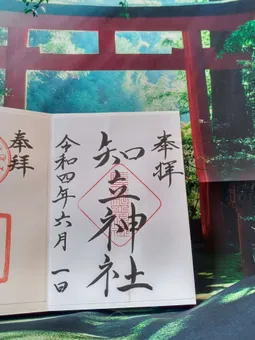 奉拝
知立神社
令和四年六月一日
奉拝